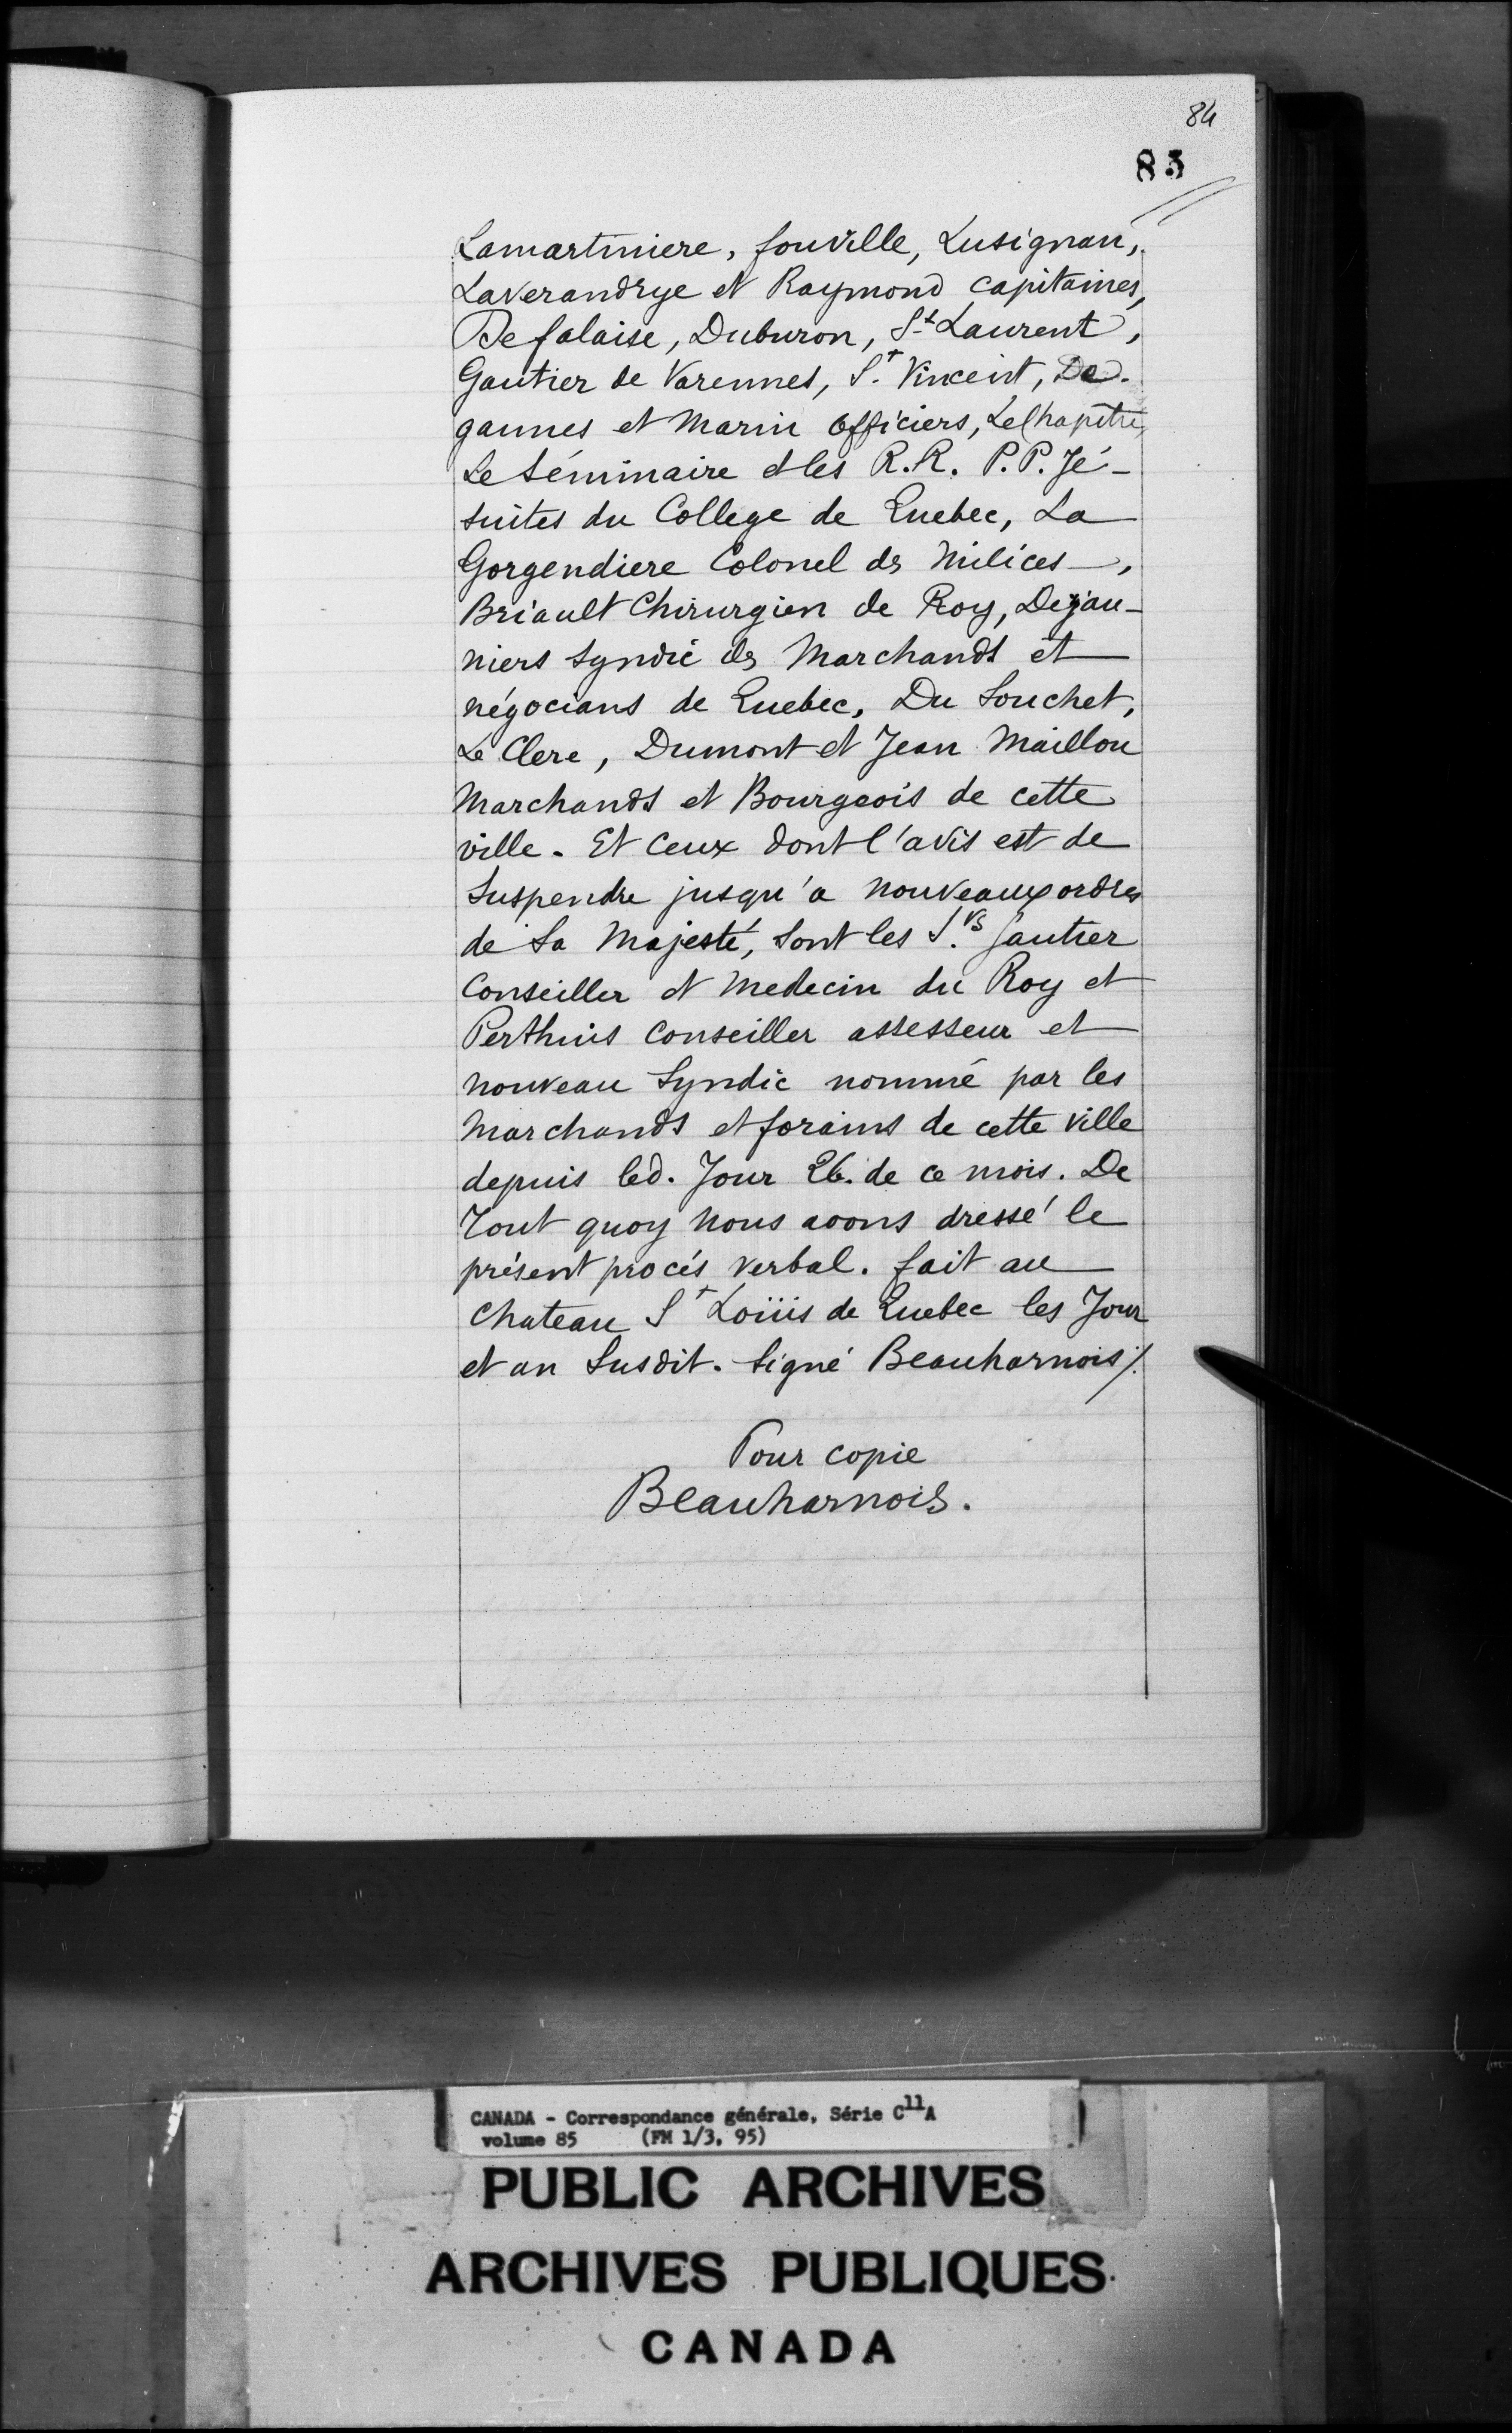 84
85
Lamartiniere, fouville, Lusignan,
Laverandrye et Raymond capitaines,
De falaise, Duburon, St Laurent,
Gautier de Varennes, St. Vincent, De
gannes et Marin officiers, Le Chapitre,
Le Séminaire et les R.R. P.P. Jé-
suites du College de Quebec, La
Gorgendiere Colonel des Milices,
Briault Chirurgien de Roy, Dejau-
niers Syndic des Marchands et
négocians de Quebec, Du Souchet,
Le Clere, Dumont et Jean Maillou
Marchands et Bourgeois de cette
ville. Et ceux dont l'avis est de
Suspendre jusqu'a nouveaux ordres
de Sa Majesté, Sont les Srs. Gautier
Conseiller et Medecin du Roy et
Perthuis Conseiller assesseur et
nouveau Syndic nommé par les
Marchands et forains de cette ville
depuis led. Jour 26. de ce mois. De
Tout quoy nous avons dressé le
présent procés verbal. fait au
Chateau St Loüis de Quebec les Jour
et an Susdit. Signé Beauharnois %.
Pour copie
Beauharnois.
CANADA - Correspondance générale, Série C11A
volume 85 (FM 1/3, 95)
PUBLIC ARCHIVES
ARCHIVES PUBLIQUES
CANADA